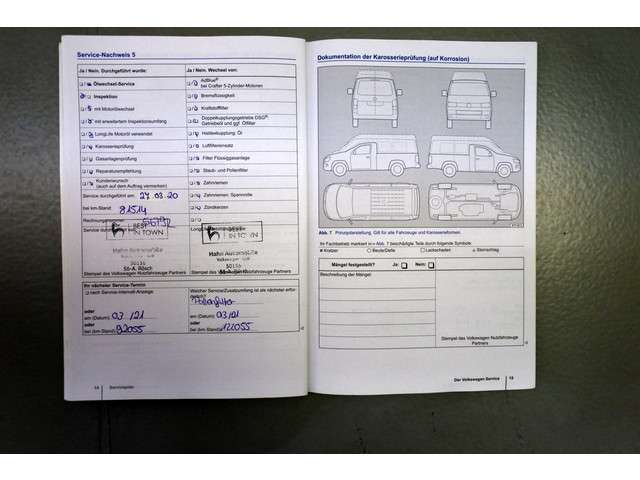 Service-Nachweis 5
Ja / Nein. Durchgeführt wurde:
Ölwechsel-Service
Inspektion
mit Motorölwechsel
mit erweitertem Inspektionsumfang
LongLife Motoröl verwendet
Karosserieprüfung
Gasanlagenprüfung
Reparaturempfehlung
Kundenwunsch
(auch auf dem Auftrag vermerken)
Service durchgeführt am: 27.03.20
bei km-Stand: 81514
Rechnungsnummer:
BEST
IN TOWN
Hahn Automobile
50-A, Rösch
Stempel des Volkswagen Nutzfahrzeuge Partners
Ja / Nein. Wechsel von:
AdBlue®
bei Crafter 5-Zylinder-Motoren
Bremsflüssigkeit
Kraftstofffilter
Doppelkupplungsgetriebe DSG®:
Getriebeöl und ggf. Ölfilter
Haldexkupplung: Öl
Luftfiltereinsatz
Filter Flüssiggasanlage
Staub- und Pollenfilter
Zahnriemen
Zahnriemen: Spannrolle
Zündkerzen
BEST
IN TOWN
Hahn Automobile
Stempel des Volkswagen Nutzfahrzeuge Partners
Ihr nächster Service-Termin
nach Service-Intervall-Anzeige
oder
am (Datum): 03/21
oder
bei (km-Stand): 92055
Welcher Service/Zusatzumfang ist als nächster erfor-
derlich?
Pollenfilter
oder
am (Datum): 03/21
oder
bei (km-Stand): 122055
14 Serviceplan
Dokumentation der Karosserieprüfung (auf Korrosion)
Abb. 7 Prinzipdarstellung. Gilt für alle Fahrzeuge und Karosserieformen.
Ihr Fachbetrieb markiert in Abb. 7 beschädigte Teile durch folgende Symbole:
Kratzer Beule/Delle Lackschaden Steinschlag
Mängel festgestellt? Ja: Nein:
Beschreibung der Mängel:
Stempel des Volkswagen Nutzfahrzeuge
Partners
Der Volkswagen-Service 15